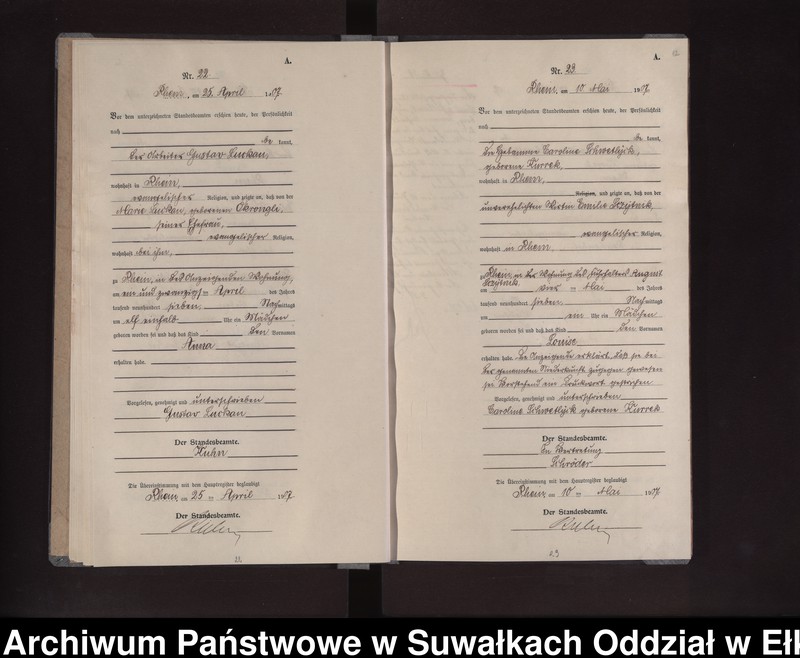 A.
Nr. 22
Rhein, am 25. April 1907.
Vor dem unterzeichneten Standesbeamten erschien heute, der Persönlichkeit
nach
be kannt,
der Arbeiter Gustav Luckau,
wohnhaft in Rhein,
evangelischer Religion, und zeigte an, daß von der
Marie Luckau, geborenen Okrongli,
seiner Ehefrau,
evangelischer Religion,
wohnhaft bei ihm,
zu Rhein, in des Anzeigenden Wohnung,
am ein und zwanzigsten April des Jahres
tausend neunhundert sieben, Nachmittags
um elf einhalb Uhr ein Mädchen
geboren worden sei und daß das Kind den Vornamen
Anna
erhalten habe.
Vorgelesen, genehmigt und unterschrieben
Gustav Luckau
Der Standesbeamte.
Kuhn
Die Übereinstimmung mit dem Hauptregister beglaubigt
Rhein am 25 ten April 1907
Der Standesbeamte.
Kuhn
22
A.
12
Nr. 23
Rhein, am 10 Mai 1907.
Vor dem unterzeichneten Standesbeamten erschien heute, der Persönlichkeit
nach
be kannt,
die Hebamme Caroline Schwetlick,
geborene Kurrek,
wohnhaft in Rhein,
Religion, und zeigte an, daß von der
unverehelichten Wirtin Emilie Szeitnik
evangelischer Religion,
wohnhaft in Rhein
zu Rhein, in der Wohnung des August
am ten Mai des Jahres
tausend neunhundert sieben Nachmittags
um ein Uhr ein Mädchen
geboren worden sei und daß das Kind den Vornamen
Louise
erhalten habe. Die Anzeigende erklärt, daß sie bei
der genannten Niederkunft zugegen gewesen
sei Vorstehend ein Druckwort gestrichen
Vorgelesen, genehmigt und unterschrieben
Caroline Schwetlick geborene Kurrek
Der Standesbeamte.
In Vertretung
Schröder
Die Übereinstimmung mit dem Hauptregister beglaubigt
Rhein am 10 ten Mai 1907
Der Standesbeamte.
Kuhn
23
Archiwum Państwowe w Suwałkach Oddział w Ełk